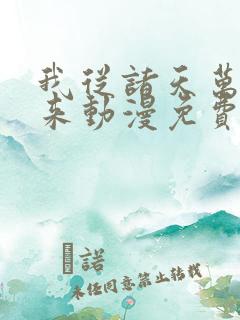 我從諸天萬
來動漫免費
諾
未任同意禁止转载